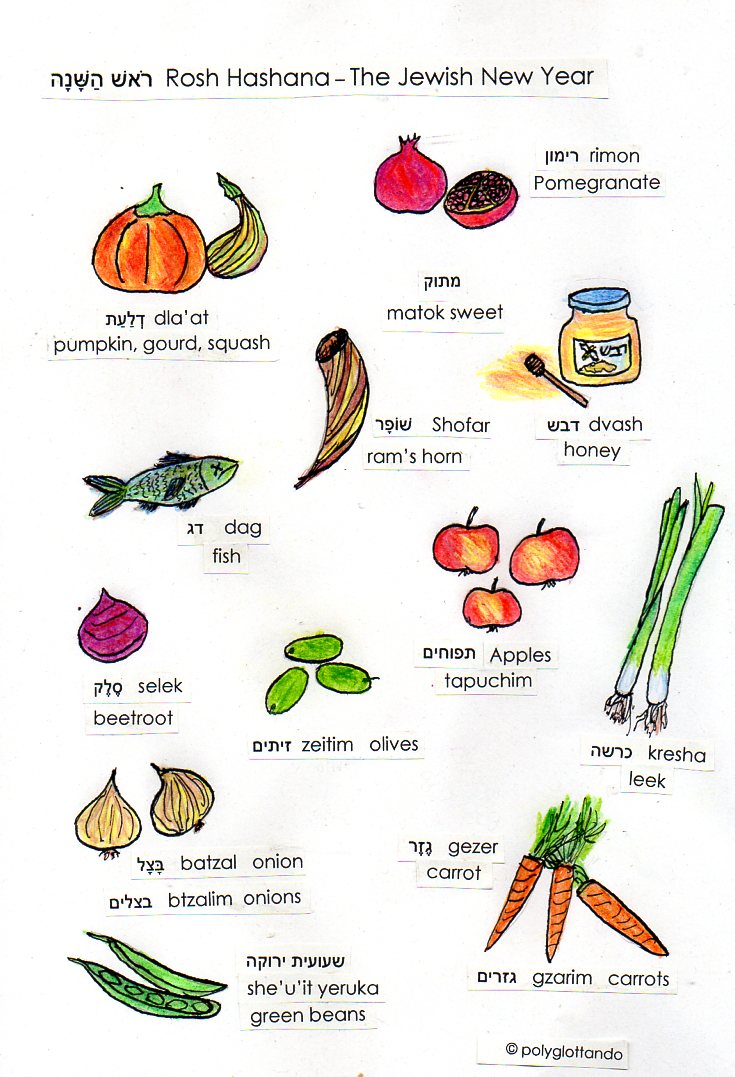 רֹאשׁ הַשָּׁנָה Rosh Hashana – The Jewish New Year
רימון rimon
Pomegranate
דְלַעַת dla'at
pumpkin, gourd, squash
מתוק
matok sweet
דבש
שׁוֹפָר Shofar
ram's horn
דבש dvash
honey
דג dag
fish
תפוחים Apples
tapuchim
סֶלֶק selek
beetroot
זיתים zeitim olives
כרשה kresha
leek
בָּצָל batzal onion
בצלים btzalim onions
גֶזֶר gezer
carrot
גזרים gzarim carrots
שעועית ירוקה
she'u'it yeruka
green beans
© polyglottando